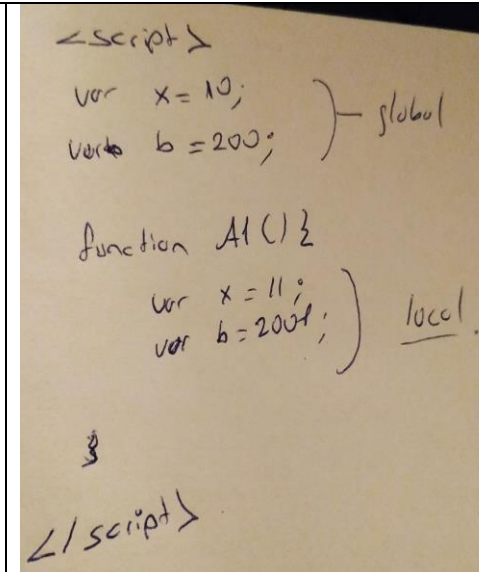 <script>
var x = 10;
var b = 200; global
function A1 () {
var x = 11;
var b = 2001; local.
}
</script>